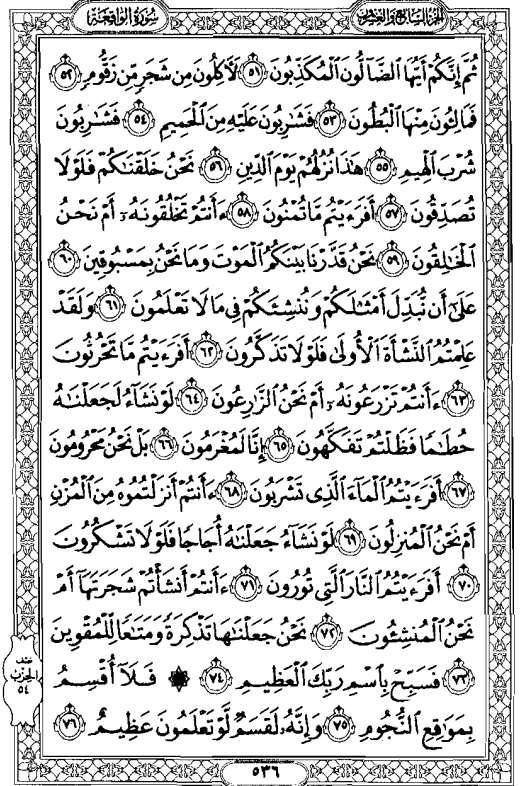 الجزء السابع والعشرون
سورة الواقعة
ثُمَّ إِنَّكُمْ أَيُّهَا ٱلضَّآلُّونَ ٱلْمُكَذِّبُونَ ٥١ لَءَاكِلُونَ مِن شَجَرٍ مِّن زَقُّومٍ ٥٢
فَمَالِـُٔونَ مِنْهَا ٱلْبُطُونَ ٥٣ فَشَٰرِبُونَ عَلَيْهِ مِنَ ٱلْحَمِيمِ ٥٤ فَشَٰرِبُونَ
شُرْبَ ٱلْهِيمِ ٥٥ هَٰذَا نُزُلُهُمْ يَوْمَ ٱلدِّينِ ٥٦ نَحْنُ خَلَقْنَٰكُمْ فَلَوْلَا
تُصَدِّقُونَ ٥٧ أَفَرَءَيْتُم مَّا تُمْنُونَ ٥٨ ءَأَنتُمْ تَخْلُقُونَهُۥٓ أَمْ نَحْنُ
ٱلْخَٰلِقُونَ ٥٩ نَحْنُ قَدَّرْنَا بَيْنَكُمُ ٱلْمَوْتَ وَمَا نَحْنُ بِمَسْبُوقِينَ ٦٠
عَلَىٰٓ أَن نُّبَدِّلَ أَمْثَٰلَكُمْ وَنُنشِئَكُمْ فِى مَا لَا تَعْلَمُونَ ٦١ وَلَقَدْ
عَلِمْتُمُ ٱلنَّشْأَةَ ٱلْأُولَىٰ فَلَوْلَا تَذَكَّرُونَ ٦٢ أَفَرَءَيْتُم مَّا تَحْرُثُونَ
٦٣ ءَأَنتُمْ تَزْرَعُونَهُۥٓ أَمْ نَحْنُ ٱلزَّٰرِعُونَ ٦٤ لَوْ نَشَآءُ لَجَعَلْنَٰهُ
حُطَٰمًا فَظَلْتُمْ تَفَكَّهُونَ ٦٥ إِنَّا لَمُغْرَمُونَ ٦٦ بَلْ نَحْنُ مَحْرُومُونَ
٦٧ أَفَرَءَيْتُمُ ٱلْمَآءَ ٱلَّذِى تَشْرَبُونَ ٦٨ ءَأَنتُمْ أَنزَلْتُمُوهُ مِنَ ٱلْمُزْنِ
أَمْ نَحْنُ ٱلْمُنزِلُونَ ٦٩ لَوْ نَشَآءُ جَعَلْنَٰهُ أُجَاجًا فَلَوْلَا تَشْكُرُونَ
٧٠ أَفَرَءَيْتُمُ ٱلنَّارَ ٱلَّتِى تُورُونَ ٧١ ءَأَنتُمْ أَنشَأْتُمْ شَجَرَتَهَآ أَمْ
نَحْنُ ٱلْمُنشِـُٔونَ ٧٢ نَحْنُ جَعَلْنَٰهَا تَذْكِرَةً وَمَتَٰعًا لِّلْمُقْوِينَ
٧٣ فَسَبِّحْ بِٱسْمِ رَبِّكَ ٱلْعَظِيمِ ٧٤ ۞ فَلَآ أُقْسِمُ
بِمَوَٰقِعِ ٱلنُّجُومِ ٧٥ وَإِنَّهُۥ لَقَسَمٌ لَّوْ تَعْلَمُونَ عَظِيمٌ ٧٦
نصف
الحزب
٥٤
٥٣٦